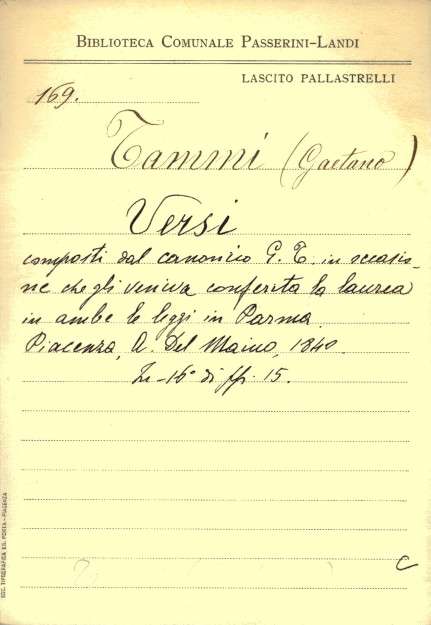 BIBLIOTECA COMUNALE PASSERINI-LANDI
LASCITO PALLASTRELLI
169.
Tammi (Gaetano)
Versi
composti dal canonico G. T. in occasio-
ne che gli veniva conferita la laurea
in ambe le leggi in Parma.
Piacenza, A. Del Maino, 1840.
In-16° di pp. 15.
C
SOC. TIPOGRAFICA ED. PORTA - PIACENZA